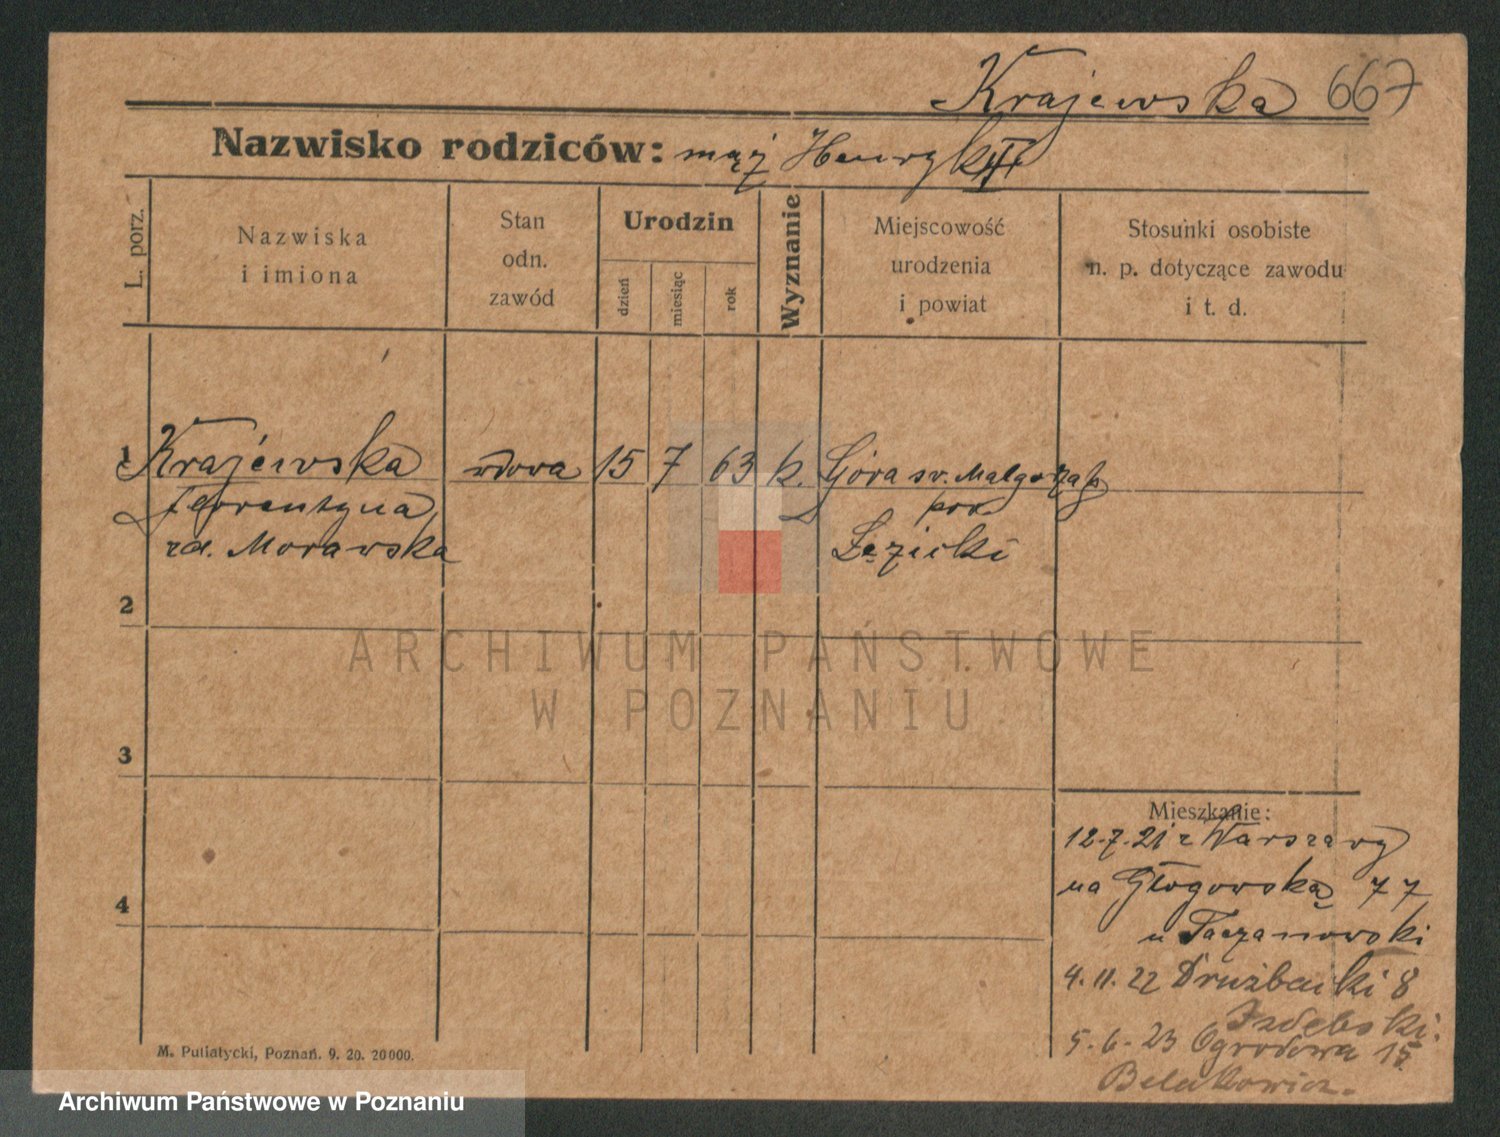 Krajewska 667
Nazwisko rodziców: mąż Henryk
L. porz.
Nazwiska
i imiona
Stan
odn.
zawód
Urodzin
dzień
miesiąc
rok
Wyznanie
Miejscowość
urodzenia
i powiat
Stosunki osobiste
n. p. dotyczące zawodu
i t. d.
1 Krajewska wdowa 15 7 63 k. Góra św. Małgorzaty
Florentyna pow.
zd. Morawska Łęzicki
2
3
4
ARCHIWUM PAŃSTWOWE
W POZNANIU
Mieszkanie:
12.7.21 z Warszawy
na Głogowską 77
u Taczanowski
4.11.22 Drużbacki 8
Izdebski.
5.6.23 Ogrodowa 15
M. Putiatycki, Poznań. 9. 20. 20000.
Archiwum Państwowe w Poznaniu